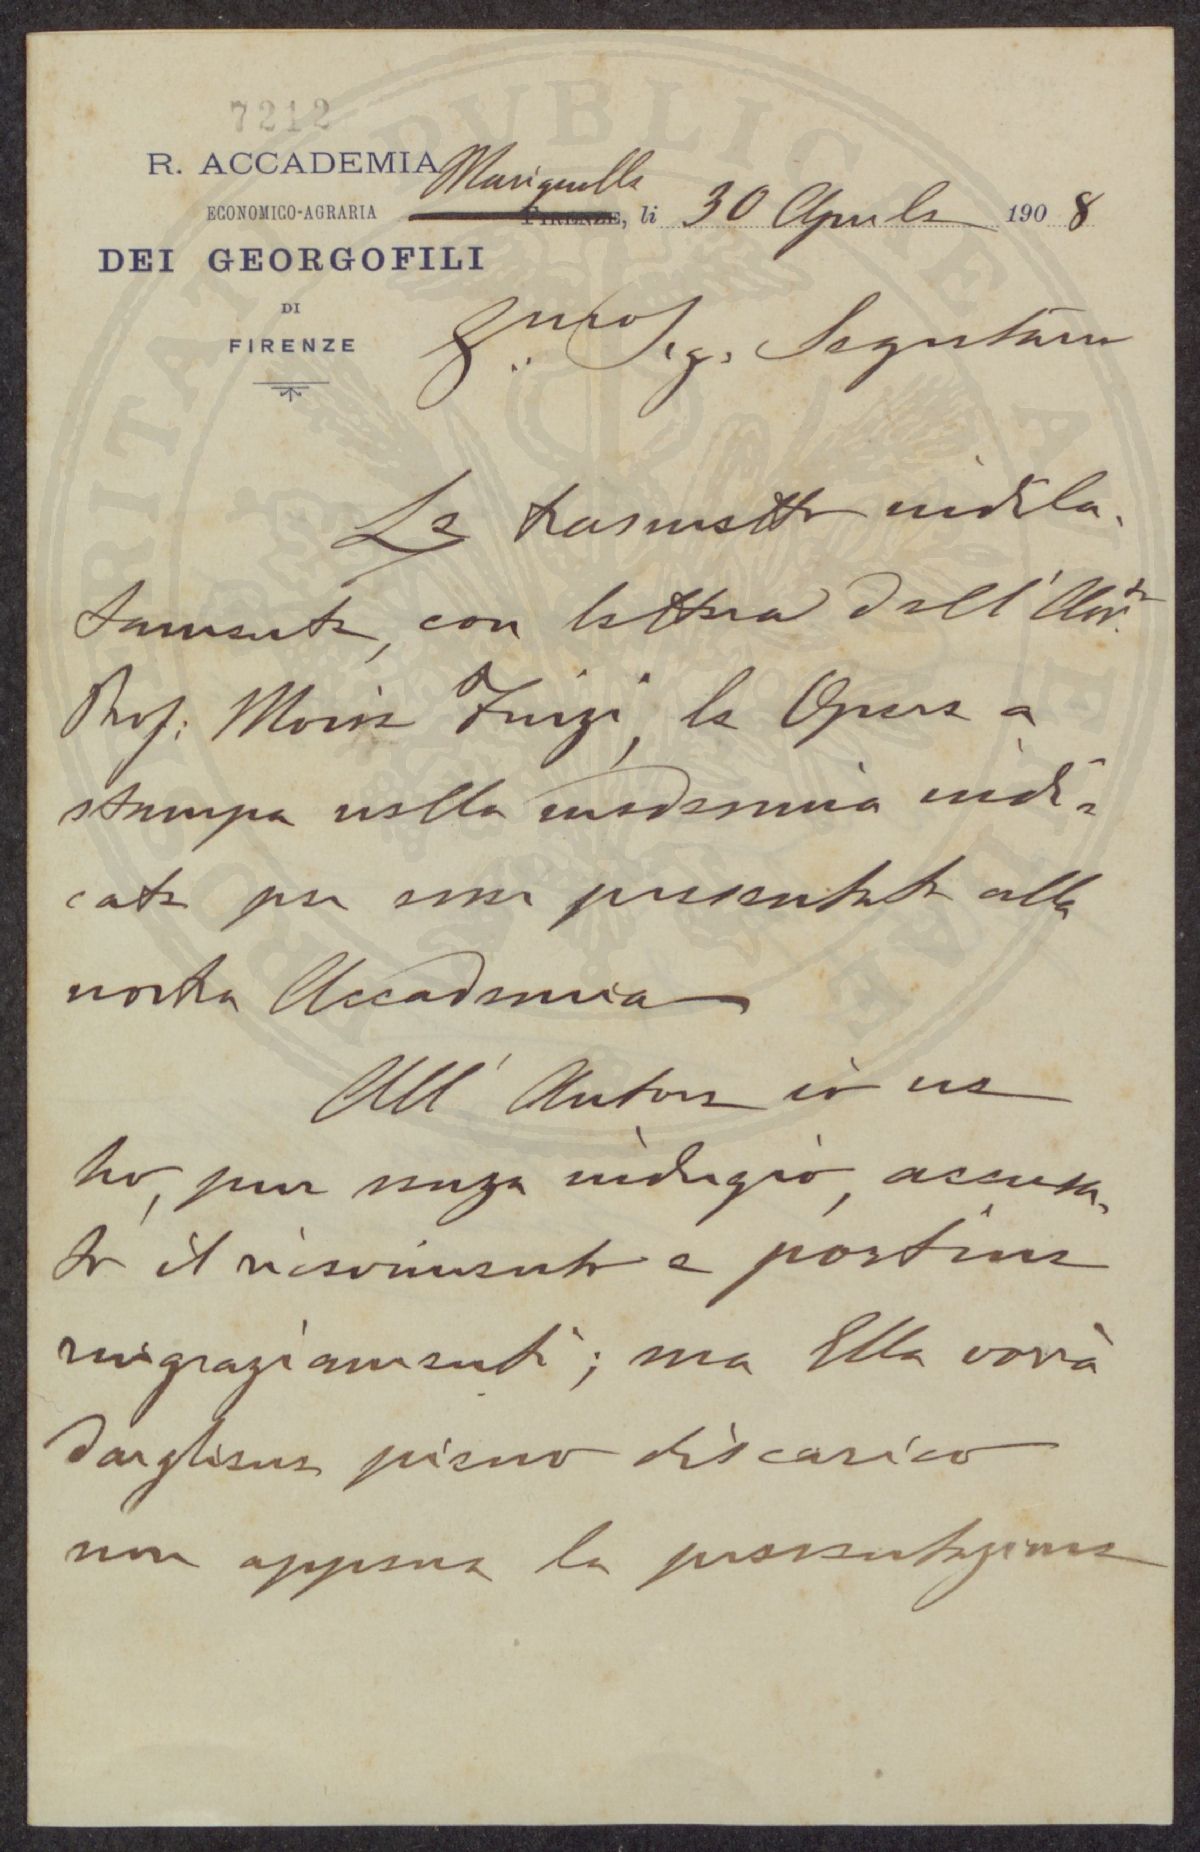 7212
R. ACCADEMIA
ECONOMICO-AGRARIA
DEI GEORGOFILI
DI
FIRENZE
Marignolle
FIRENZE, li 30 Aprile 1908
Sig. Segretario
Le trasmetto indila-
tamente, con lettera dell'Avv.to
Prof. Moisè Finzi, le Opere a
stampa nella medesima indi-
cate per esser presentate alla
nostra Accademia
All' Autore io ne
ho, pur senza indugio, accusa-
to il ricevimento e portine
ringraziamenti; ma Ella vorrà
dargliene pieno discarico
non appena la presentazione
PROSPERITATI PVBLICAE AVGENDAE